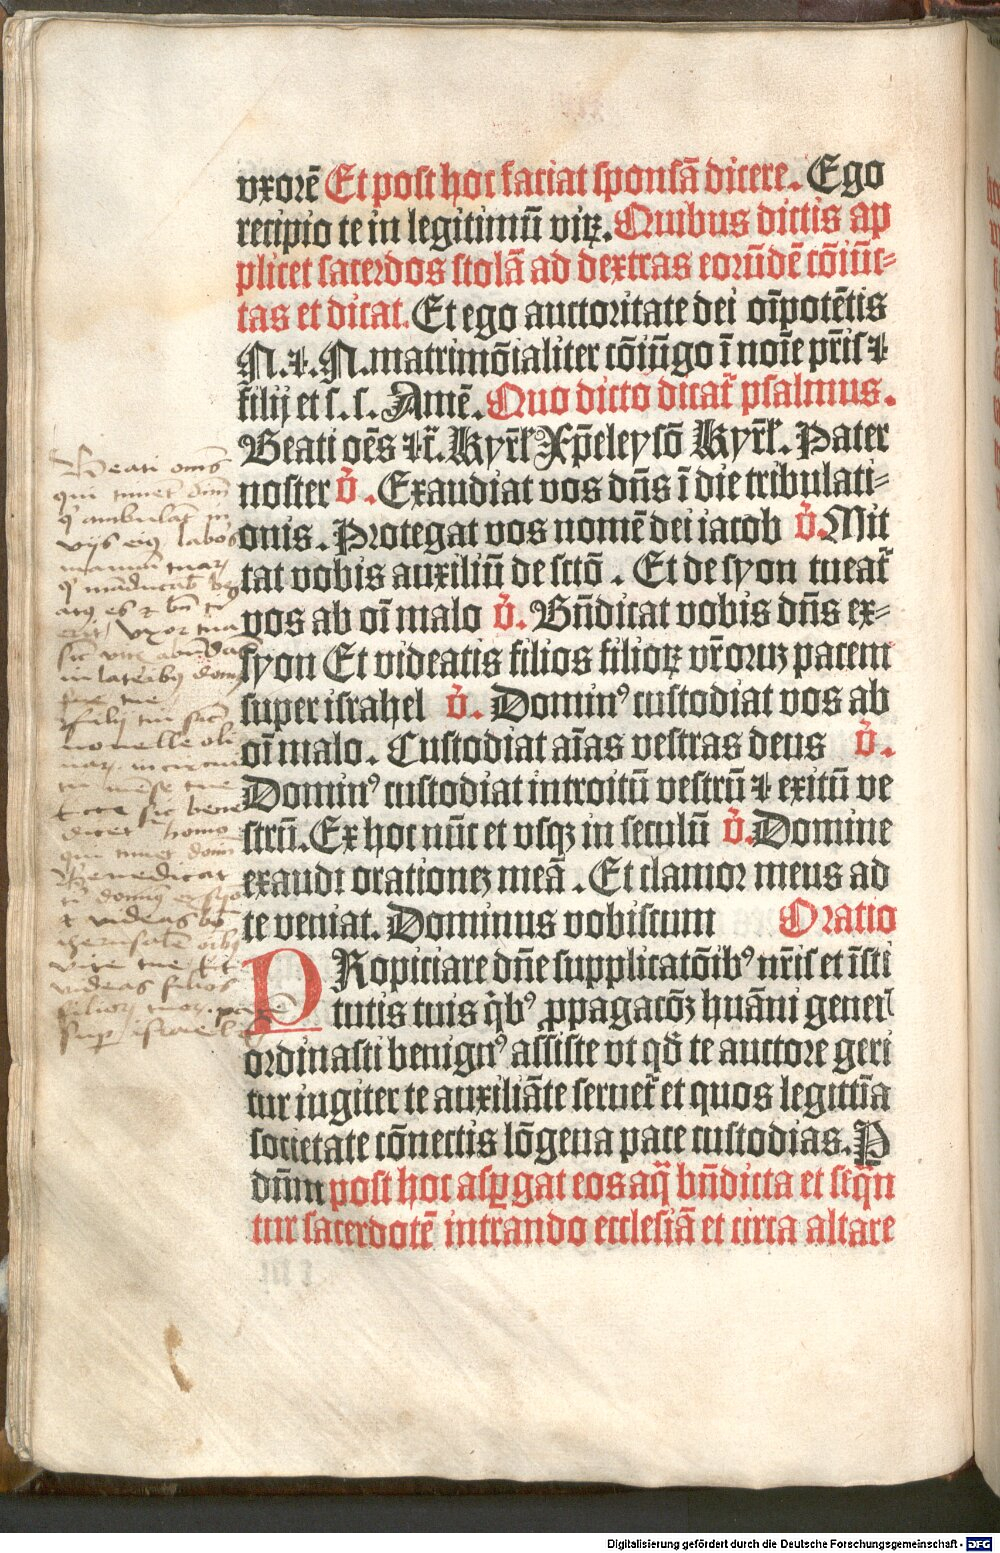 vxorē Et post hoc faciat sponsā dicere. Ego
recipio te in legitimū virꝝ. Quibus dictis ap
plicet sacerdos stolā ad dextras eorūdē cōiūc-
tas et dicat. Et ego auctoritate dei oīpotētis
N. ⁊. N. matrimōialiter cōiūgo ī noīe pr̄is ⁊
filij et s. s. Amē. Quo dicto dicat᷑ psalmus.
Beati oēs ⁊c̄. Kyrīł Xp̄eleysō Kyrīł. Pater
noster v̊. Exaudiat vos dn̄s ī die tribulati-
onis. Protegat vos nomē dei iacob v̊. Mit
tat vobis auxiliū de sctō. Et de syon tueat᷑
vos ab oī malo v̊. Bn̄dicat vobis dn̄s ex-
syon Et videatis filios filioꝝ vr̄oruꝫ pacem
super israhel v̊. Dominꝰ custodiat vos ab
oī malo. Custodiat aīas vestras deus v̊.
Dominꝰ custodiat introitū vestrū ⁊ exitū ve
strū. Ex hoc nūc et vsqꝫ in seculū v̊. Domine
exaudi orationeꝫ meā. Et clamor meus ad
te veniat. Dominus vobiscum Oratio
PRopiciare dn̄e supplicatōibꝰ nr̄is et īsti
tutis tuis q̇bꝰ ꝓpagacōꝫ huāni gener̄
ordinasti benignꝰ assiste vt qd̄ te auctore geri
tur iugiter te auxiliāte seruet᷑ et quos legittīa
societate cōnectis lōgeua pace custodias. P
dn̄m post hoc asꝑgat eos aq̄ bn̄dicta et seq̄n
tur sacerdotē intrando ecclesiā et circa altare
Beati om̄s
qui timēt dn̄m
q̇ ambulāt in
vijs eiꝰ labōs
manuū tuaꝝ
q̇ māducab be
atꝰ es ⁊ bn̄ t
erit vxor tua
sic vitis abūdās
in lateribꝰ domꝰ
tue
filij tui sic
nouelle oli
uaꝝ in circui
tu mēse tue
Ecce sic bene
dicet homo
qui timet dom̄
Benedicat
t dominꝰ ex syō
⁊ videas bo
iherusalē oībꝰ
vite tue Et
videas filios
filioꝝ tuoꝝ pacē
sup israhel